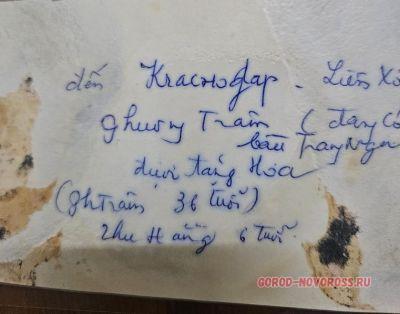 đến Krасноdар - Liên Xô
Phương Trâm (đang có
bầu
dưới tặng Hóa
(Ph Trâm 36 tuổi)
Thu Hằng 6 tuổi
GOROD-NOVOROSS.RU